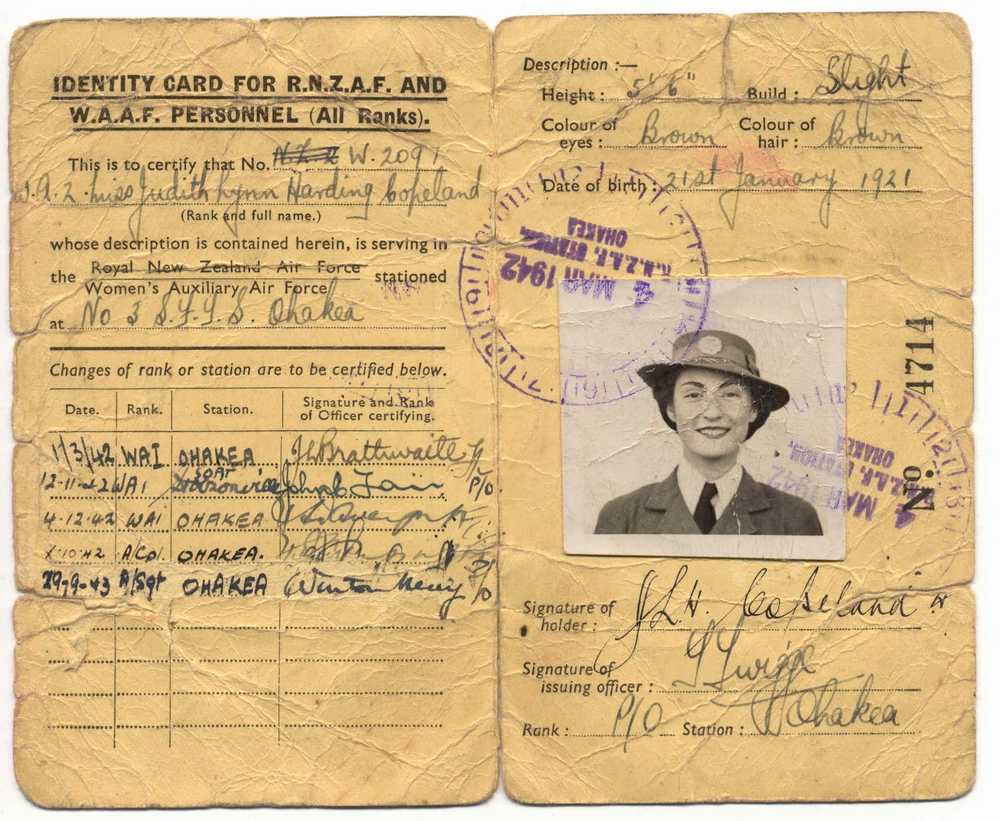 IDENTITY CARD FOR R.N.Z.A.F. AND
W.A.A.F. PERSONNEL (All Ranks).
This is to certify that No. N.Z. W.2091
Miss Judith Lynn Harding Copeland
(Rank and full name.)
whose description is contained herein, is serving in
the Royal New Zealand Air Force stationed
Women's Auxiliary Air Force
at No 3 S.F.T.S. Ohakea
Changes of rank or station are to be certified below.
Date. Rank. Station. Signature and Rank
of Officer certifying.
1/3/42 WAI OHAKEA
12-11-42 WAI P/O
4-12-42 WAI OHAKEA
10-42 A/Cpl. OHAKEA.
29-9-43 A/Sgt OHAKEA
Description :—
Height : 5' 6" Build : Slight
Colour of eyes : Brown Colour of hair : Brown
Date of birth : 21st January 1921
R.N.Z.A.F. STATION,
OHAKEA
4 MAR 1942
No 4714
R.N.Z.A.F. STATION,
OHAKEA
4 MAR 1942
Signature of
holder : J L H. Copeland
Signature of
issuing officer :
Rank : P/O Station : Ohakea